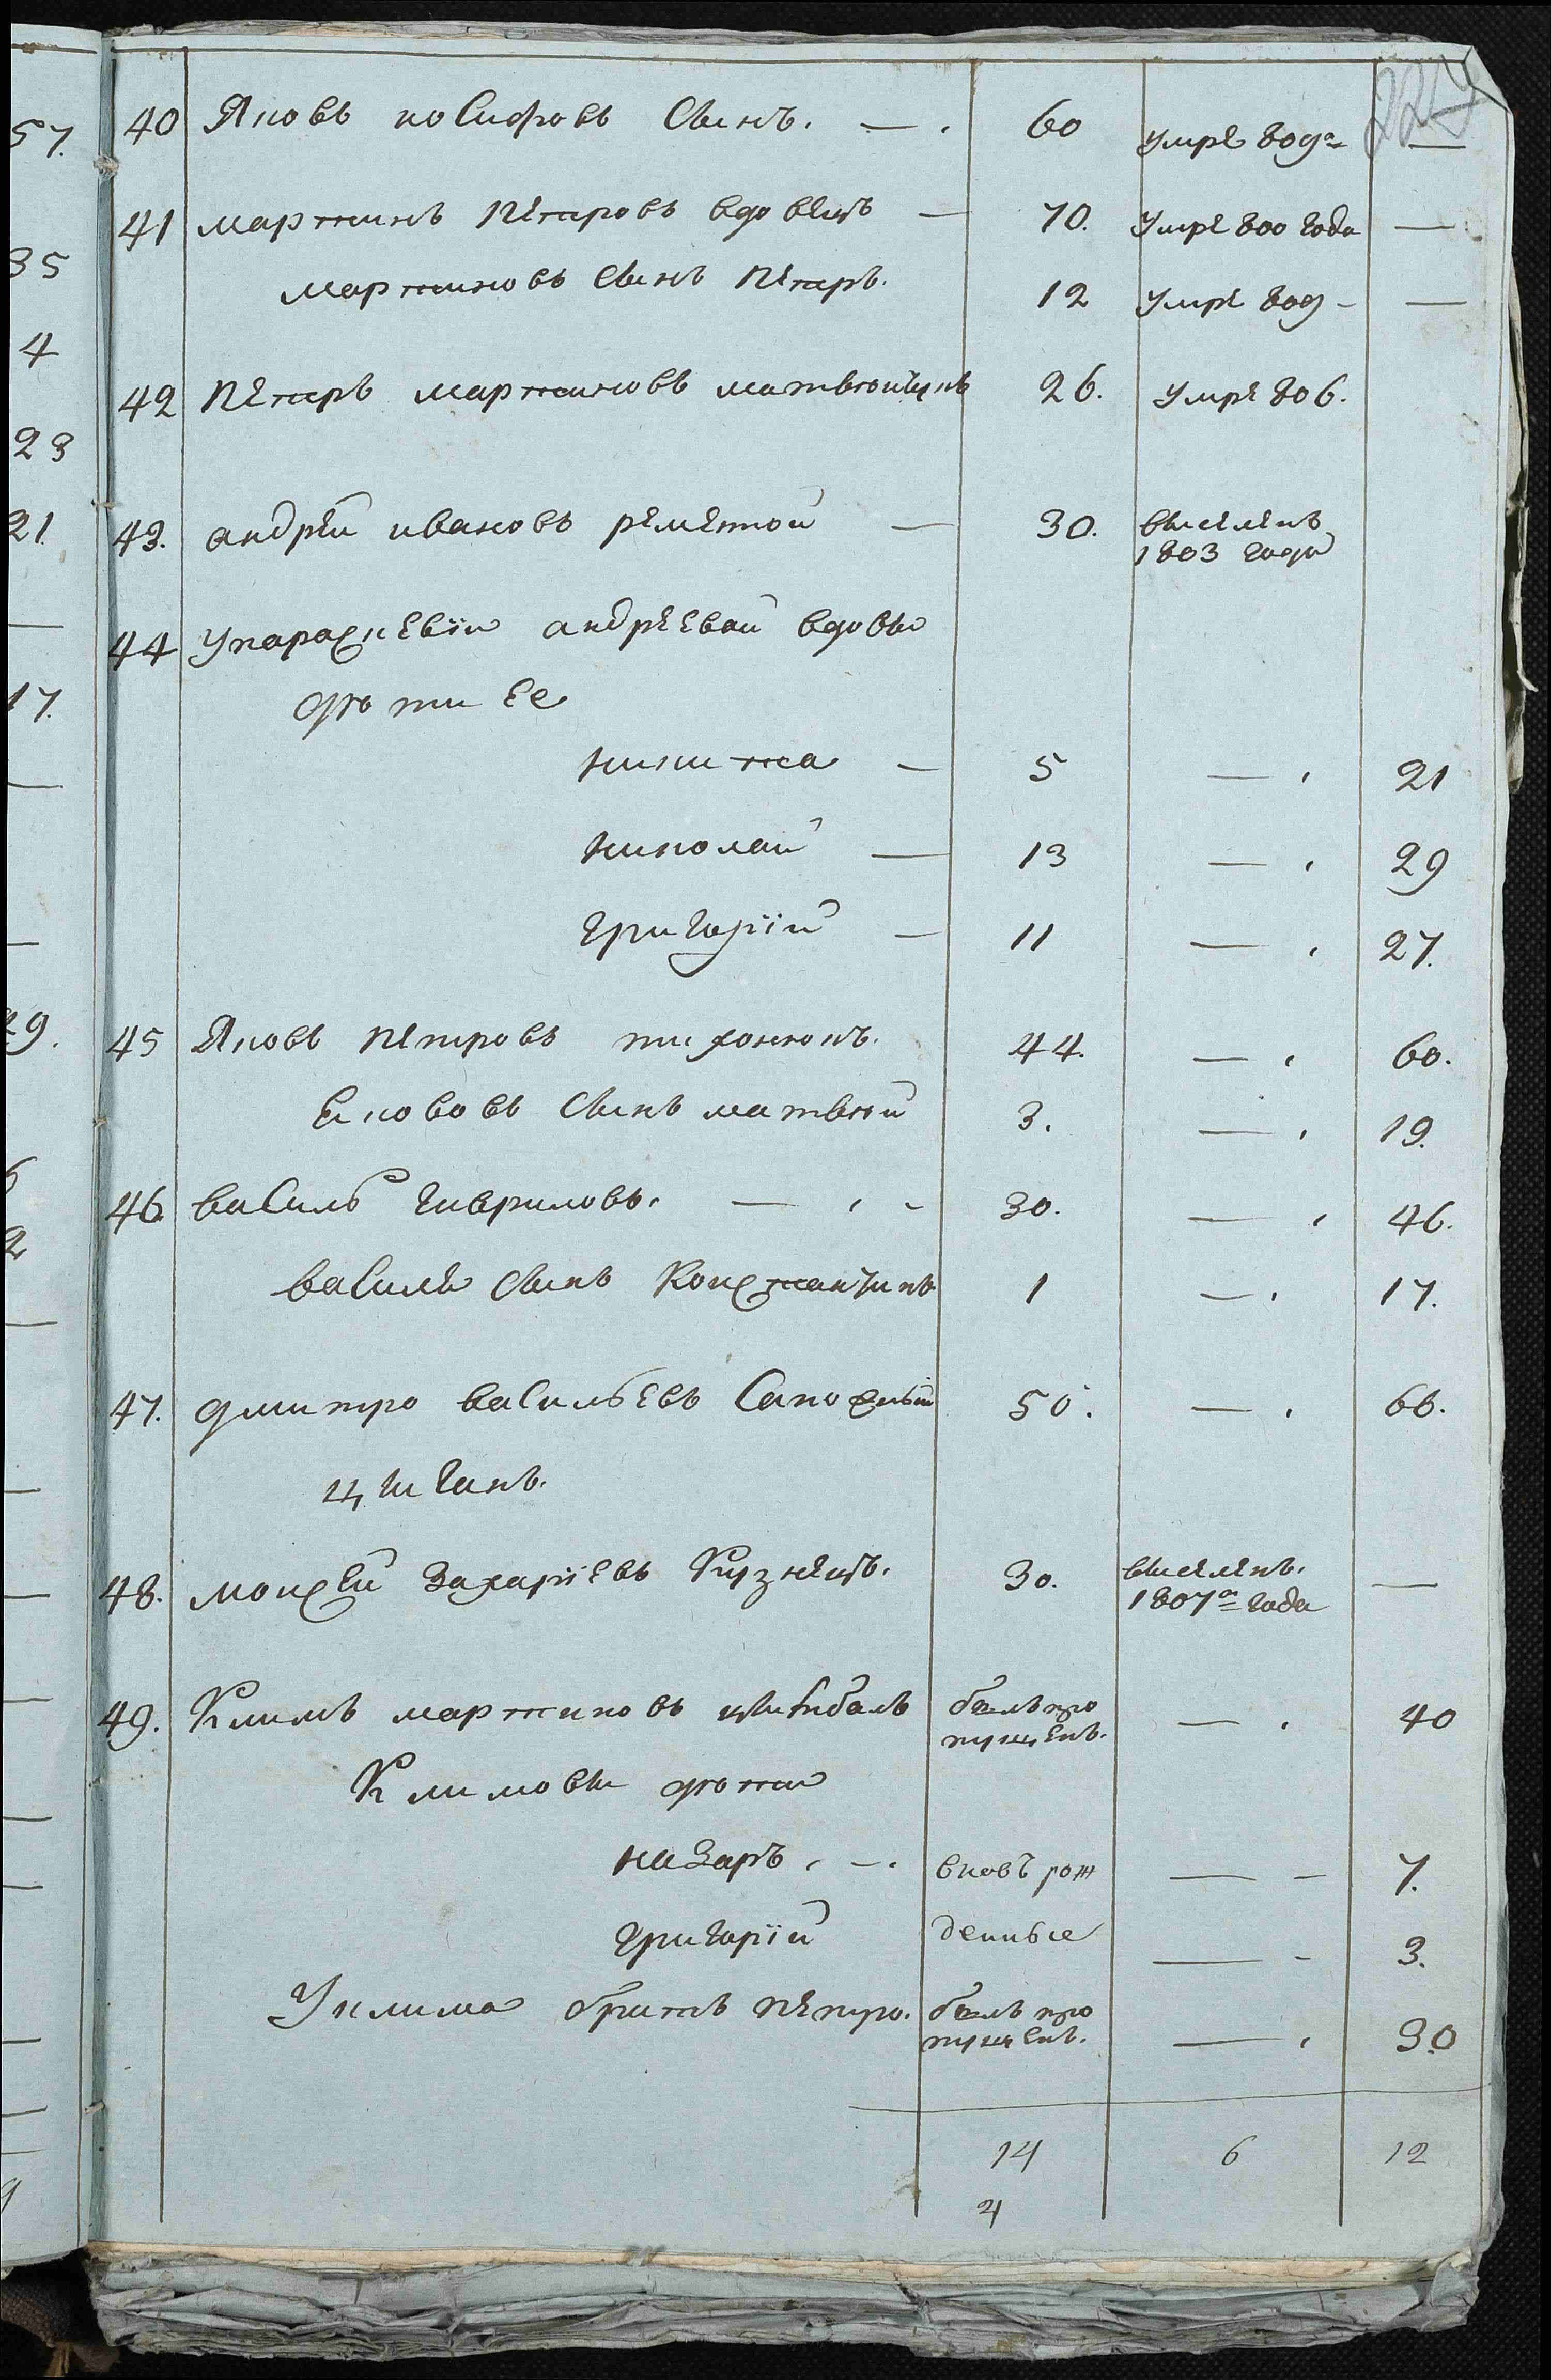 224
40 Яковъ никифоровъ Сынъ. — . 60 умре 809ᵃ —
41 мартинъ Петровъ вдовецъ — 70. умре 800 года —
мартиновъ Сынъ Петръ. 12 умре 809 — —
42 Петръ мартиновъ 26. умре 806.
43. андрей ивановъ ременной — 30. выселенъ
1803 года
44 Упараскевіи андреевой вдовы
дѣти Ее
никита — 5 — . 21
николай — 13 — . 29
григорій — 11 — . 27.
45 Яковъ Петровъ тихонюкъ. 44. — . 60.
Якововъ Сынъ матвѣй 3. — . 19.
46 василь гавриловъ. — . - 30. — . 46.
василя Сынъ Константинъ 1 — . 17.
47. дмитро васильевъ 50. — . 66.
циганъ.
48. моисей Захаріевъ Кузнецъ. 30. выселенъ.
1807ᵃ года —
49. Климъ мартиновъ цимбалъ былъ про
пущенъ. — . 40
Климовы дѣти
назаръ. — . вновь рож — — 7.
григорій денные — - 3.
Уклима братъ петро. былъ про
пущенъ. — . 30
14 6 12
4
57.
35
4
23
21.
—
17.
—
—
29.
6
2
—
—
—
—
—
—
—
—
9